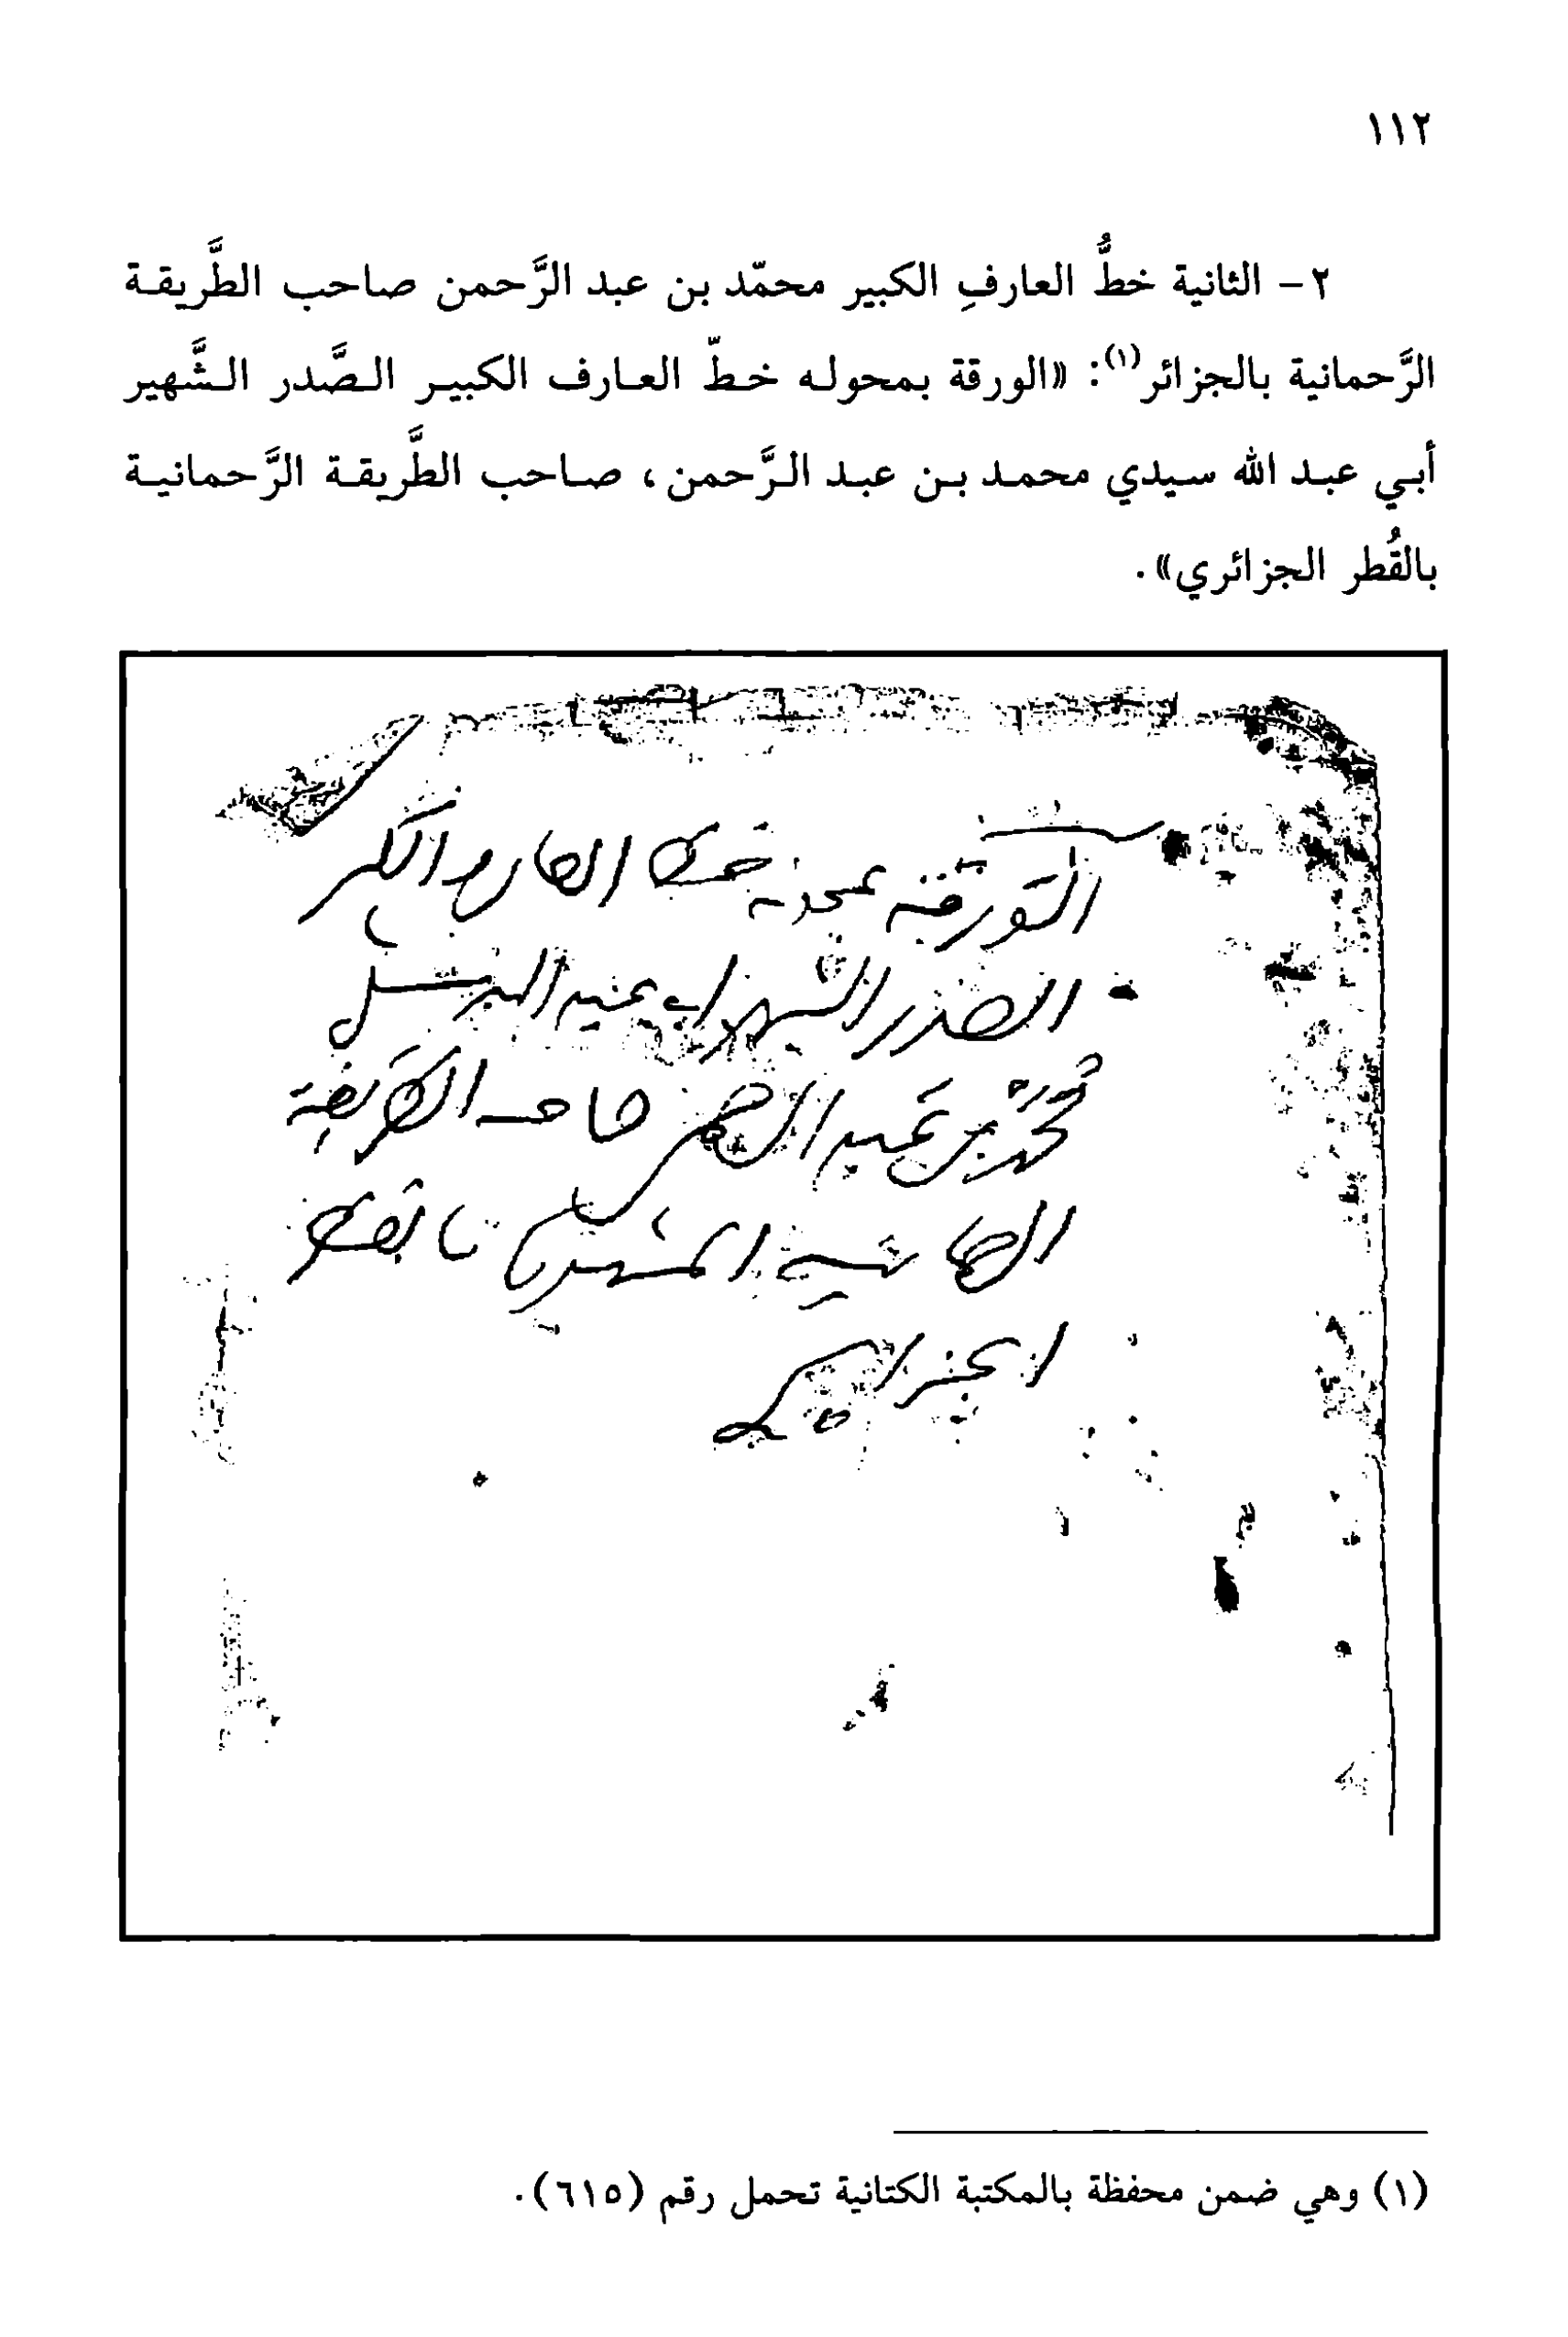 ١١٢
٢- الثانية خطُّ العارفِ الكبير محمّد بن عبد الرَّحمن صاحب الطَّريقة
الرَّحمانية بالجزائر(١): «الورقة بمحوله خطّ العارف الكبير الصَّدر الشَّهير
أبي عبد الله سيدي محمد بن عبد الرَّحمن، صاحب الطَّريقة الرَّحمانية
بالقُطر الجزائري».
الورقة خط العارف الكبير
الصدر الشهير أبي عبد الله
محمد بن عبد الرحمن صاحب الطريقة
الرحمانية بالقطر
الجزائري
(١) وهي ضمن محفظة بالمكتبة الكتانية تحمل رقم (٦١٥).